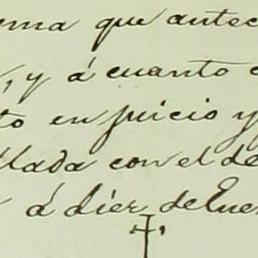 que antec
, y á cuanto
to en juicio y
llada con el de
á diez de Ene